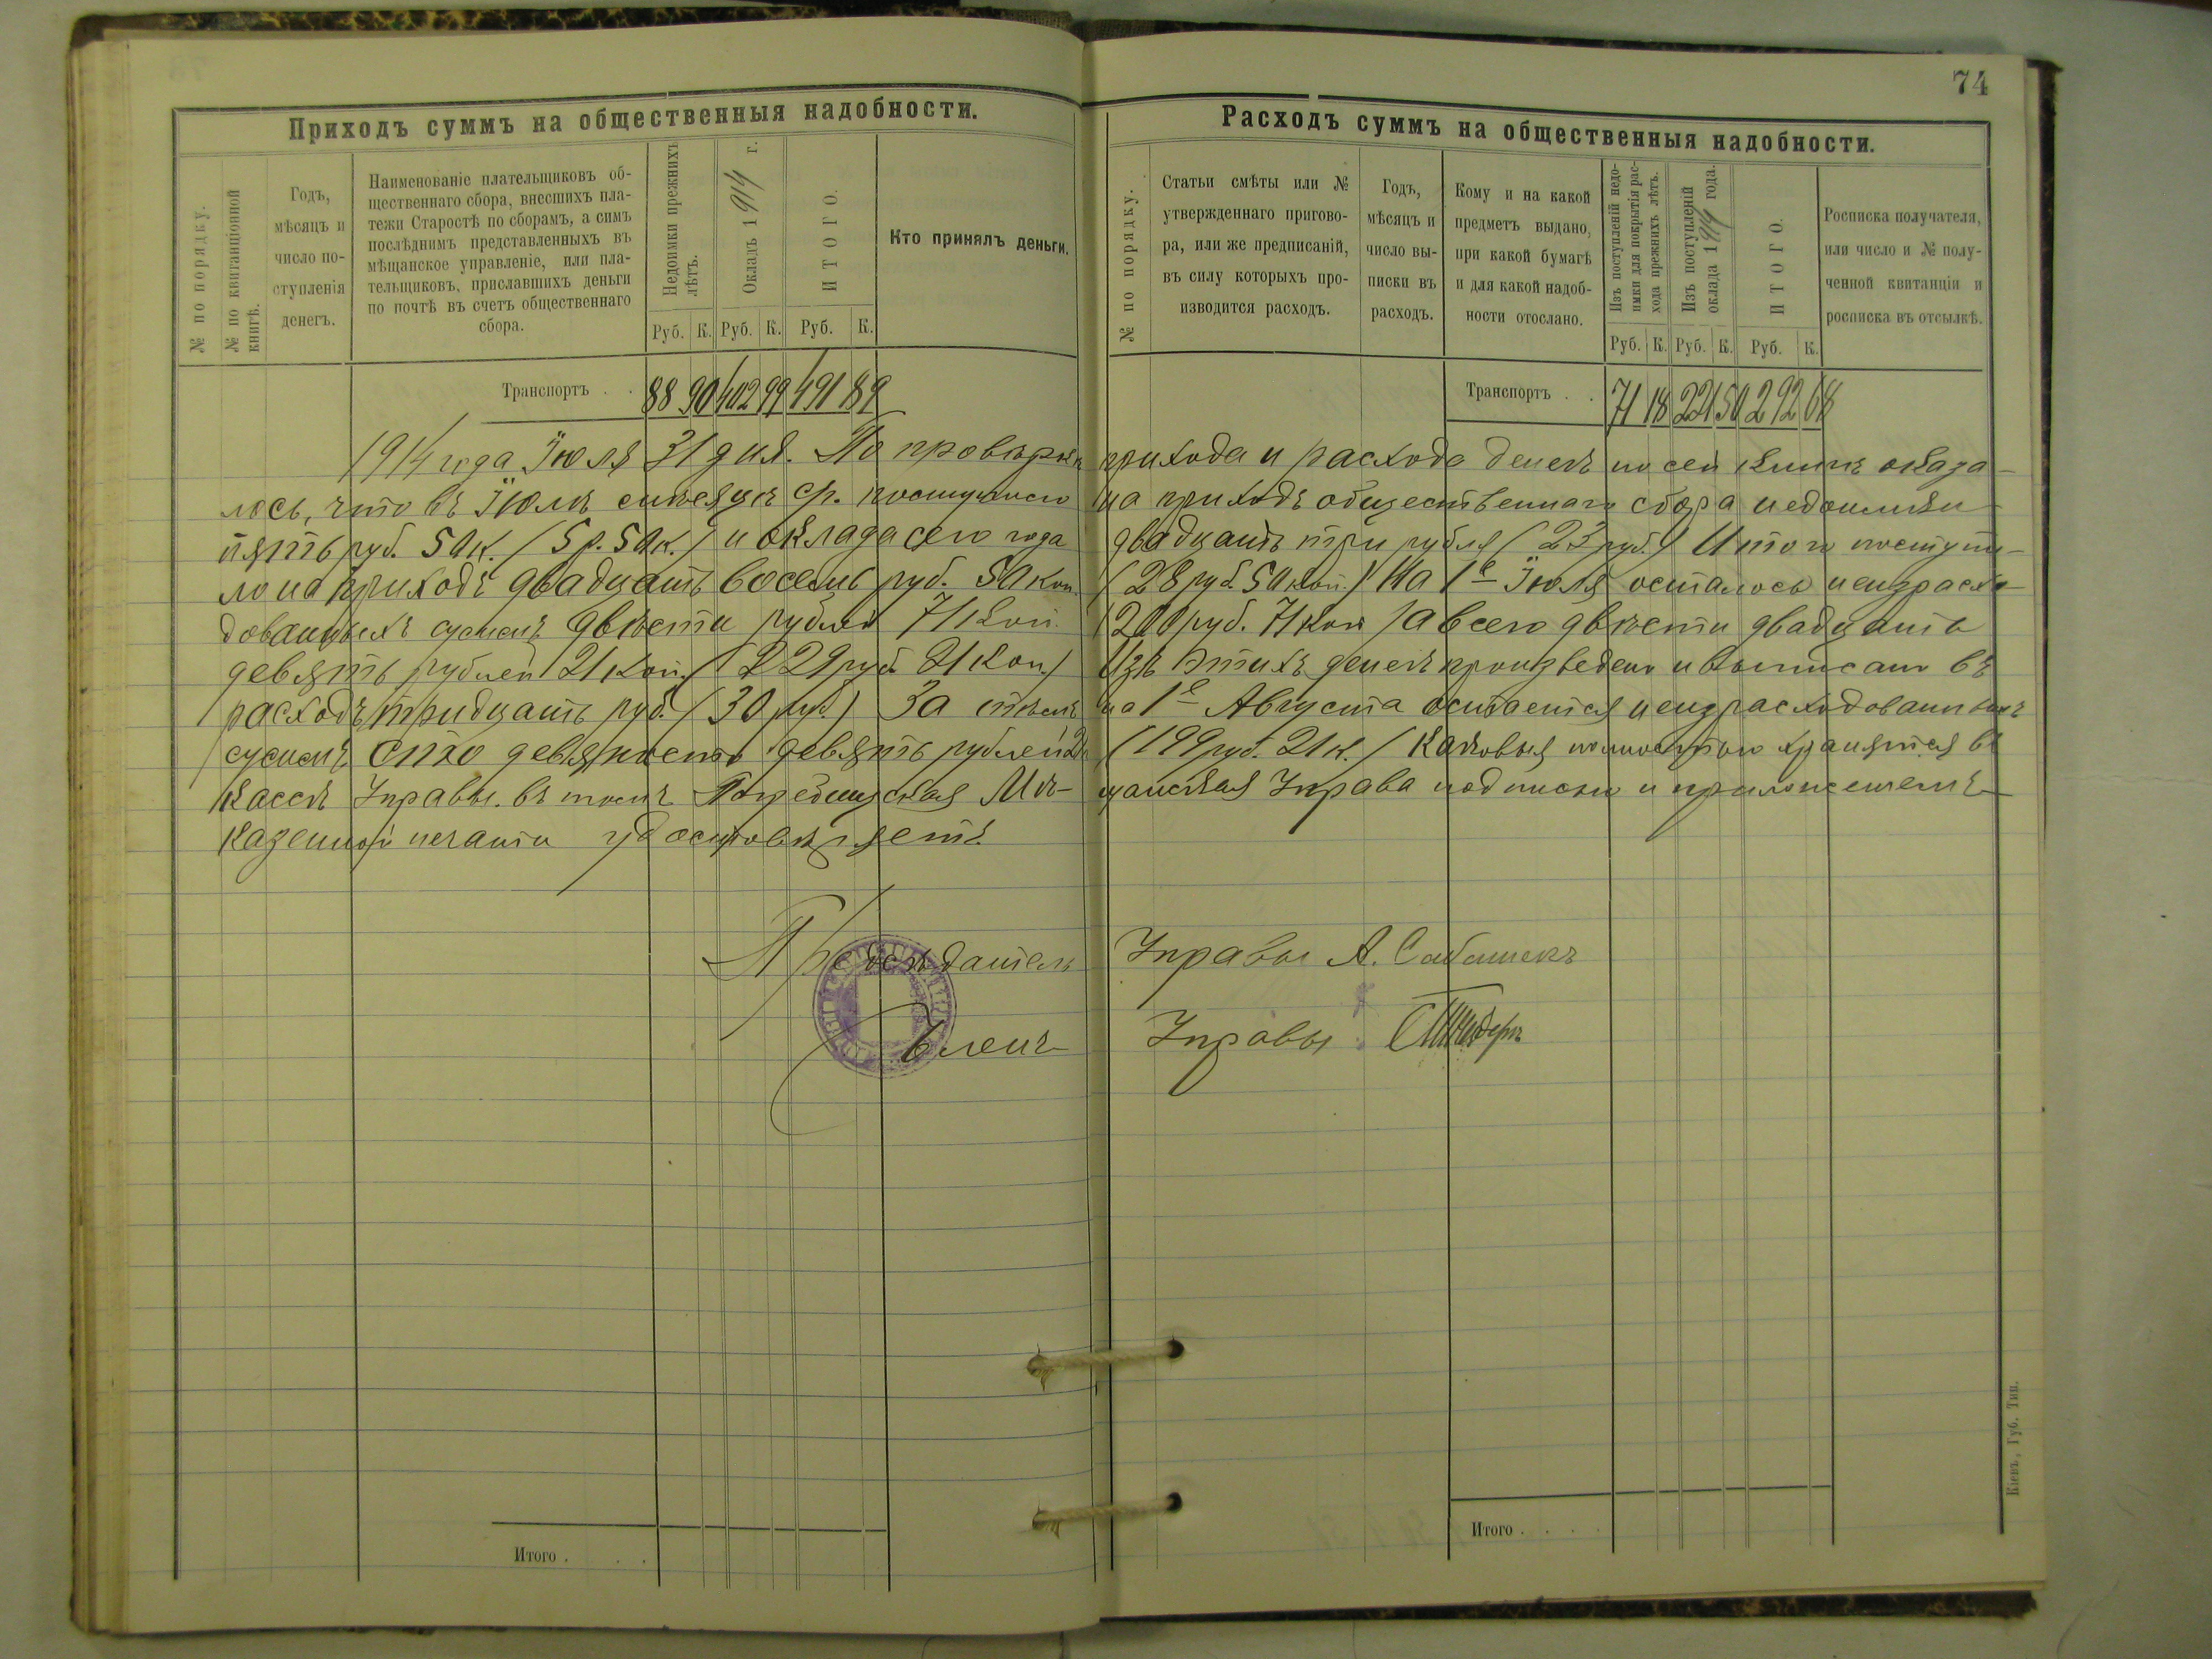 74
Приходъ суммъ на общественныя надобности.
№ по порядку.
№ по квитанціонной
книгѣ.
Годъ,
мѣсяцъ и
число по-
ступленія
денегъ.
Наименованіе плательщиковъ об-
щественнаго сбора, внесшихъ пла-
тежи Старостѣ по сборамъ, а симъ
послѣднимъ представленныхъ въ
мѣщанское управленіе, или пла-
тельщиковъ, приславшихъ деньги
по почтѣ въ счетъ общественнаго
сбора.
Недоимки прежнихъ
лѣтъ.
Окладъ 1914 г.
ИТОГО.
Кто принялъ деньги.
Руб. К. Руб. К. Руб. К.
Транспортъ . . 88 90 402 99 491 89
Расходъ суммъ на общественныя надобности.
№ по порядку.
Статьи смѣты или №
утвержденнаго пригово-
ра, или же предписаній,
въ силу которыхъ про-
изводится расходъ.
Годъ,
мѣсяцъ и
число вы-
писки въ
расходъ.
Кому и на какой
предметъ выдано,
при какой бумагѣ
и для какой надоб-
ности отослано.
Изъ поступленій недо-
имки для покрытія рас-
хода прежнихъ лѣтъ.
Изъ поступленій
оклада 1914 года.
ИТОГО.
Росписка получателя,
или число и № полу-
ченной квитанціи и
росписка въ отсылкѣ.
Руб. К. Руб. К. Руб. К.
Транспортъ . . 71 18 221 50 292 68
1914 года Іюля 31 дня. По провѣркѣ прихода и расхода денегъ по сей книгѣ оказа-
лось, что въ Іюлѣ мѣсяцѣ с/г. поступило на приходъ общественнаго сбора недоимки
пять руб. 50 к. (5 р. 50 к.) и оклада сего года двадцать три рубля (23 руб.) Итого поступи-
ло на приходъ двадцать восемь руб. 50 коп. (28 руб. 50 коп.) На 1е Іюля осталось неизрасхо-
дованныхъ суммъ двѣсти рублей 71 коп. (200 руб. 71 коп.) а всего двѣсти двадцать
девять рублей 21 коп. (229 руб. 21 коп.) Изъ этихъ денегъ произведено и выписано въ
расходъ тридцать руб. (30 руб.) За тѣмъ на 1е Августа остается неизрасходованныхъ
суммъ сто девяносто девять рублей 21 к (199 руб. 21 к.) каковыя полностью хранятся въ
кассѣ Управы. въ томъ Мѣ- щанская Управа подписью и приложеніемъ
казенной печати удостовѣряетъ.
Предсѣдатель Управы А. Сабашекъ
Членъ Управы
Итого . . .
Итого . . . .
Кіевъ, Губ. Тип.